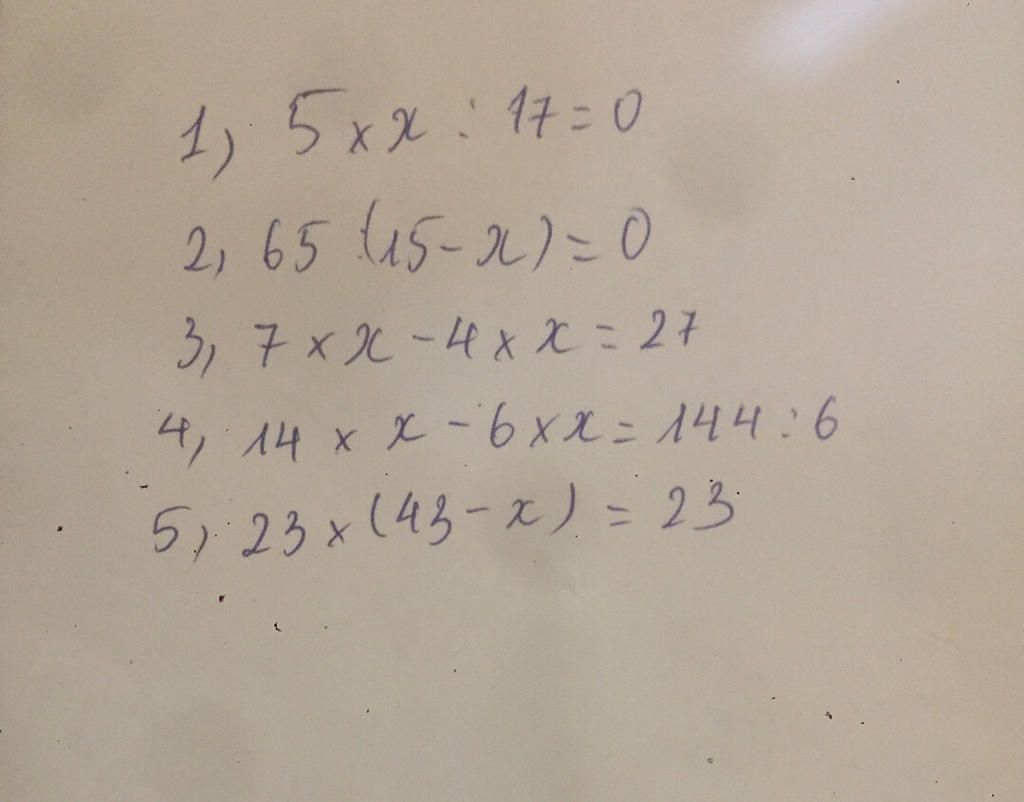 1, 5 × x : 17 = 0
2, 65 (15 - x) = 0
3, 7 × x - 4 × x = 27
4, 14 × x - 6 × x = 144 : 6
5, 23 × (43 - x) = 23